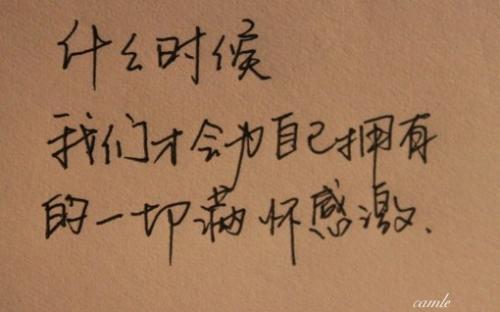 什么时候
我们才会为自己拥有
的一切满怀感激.
camle